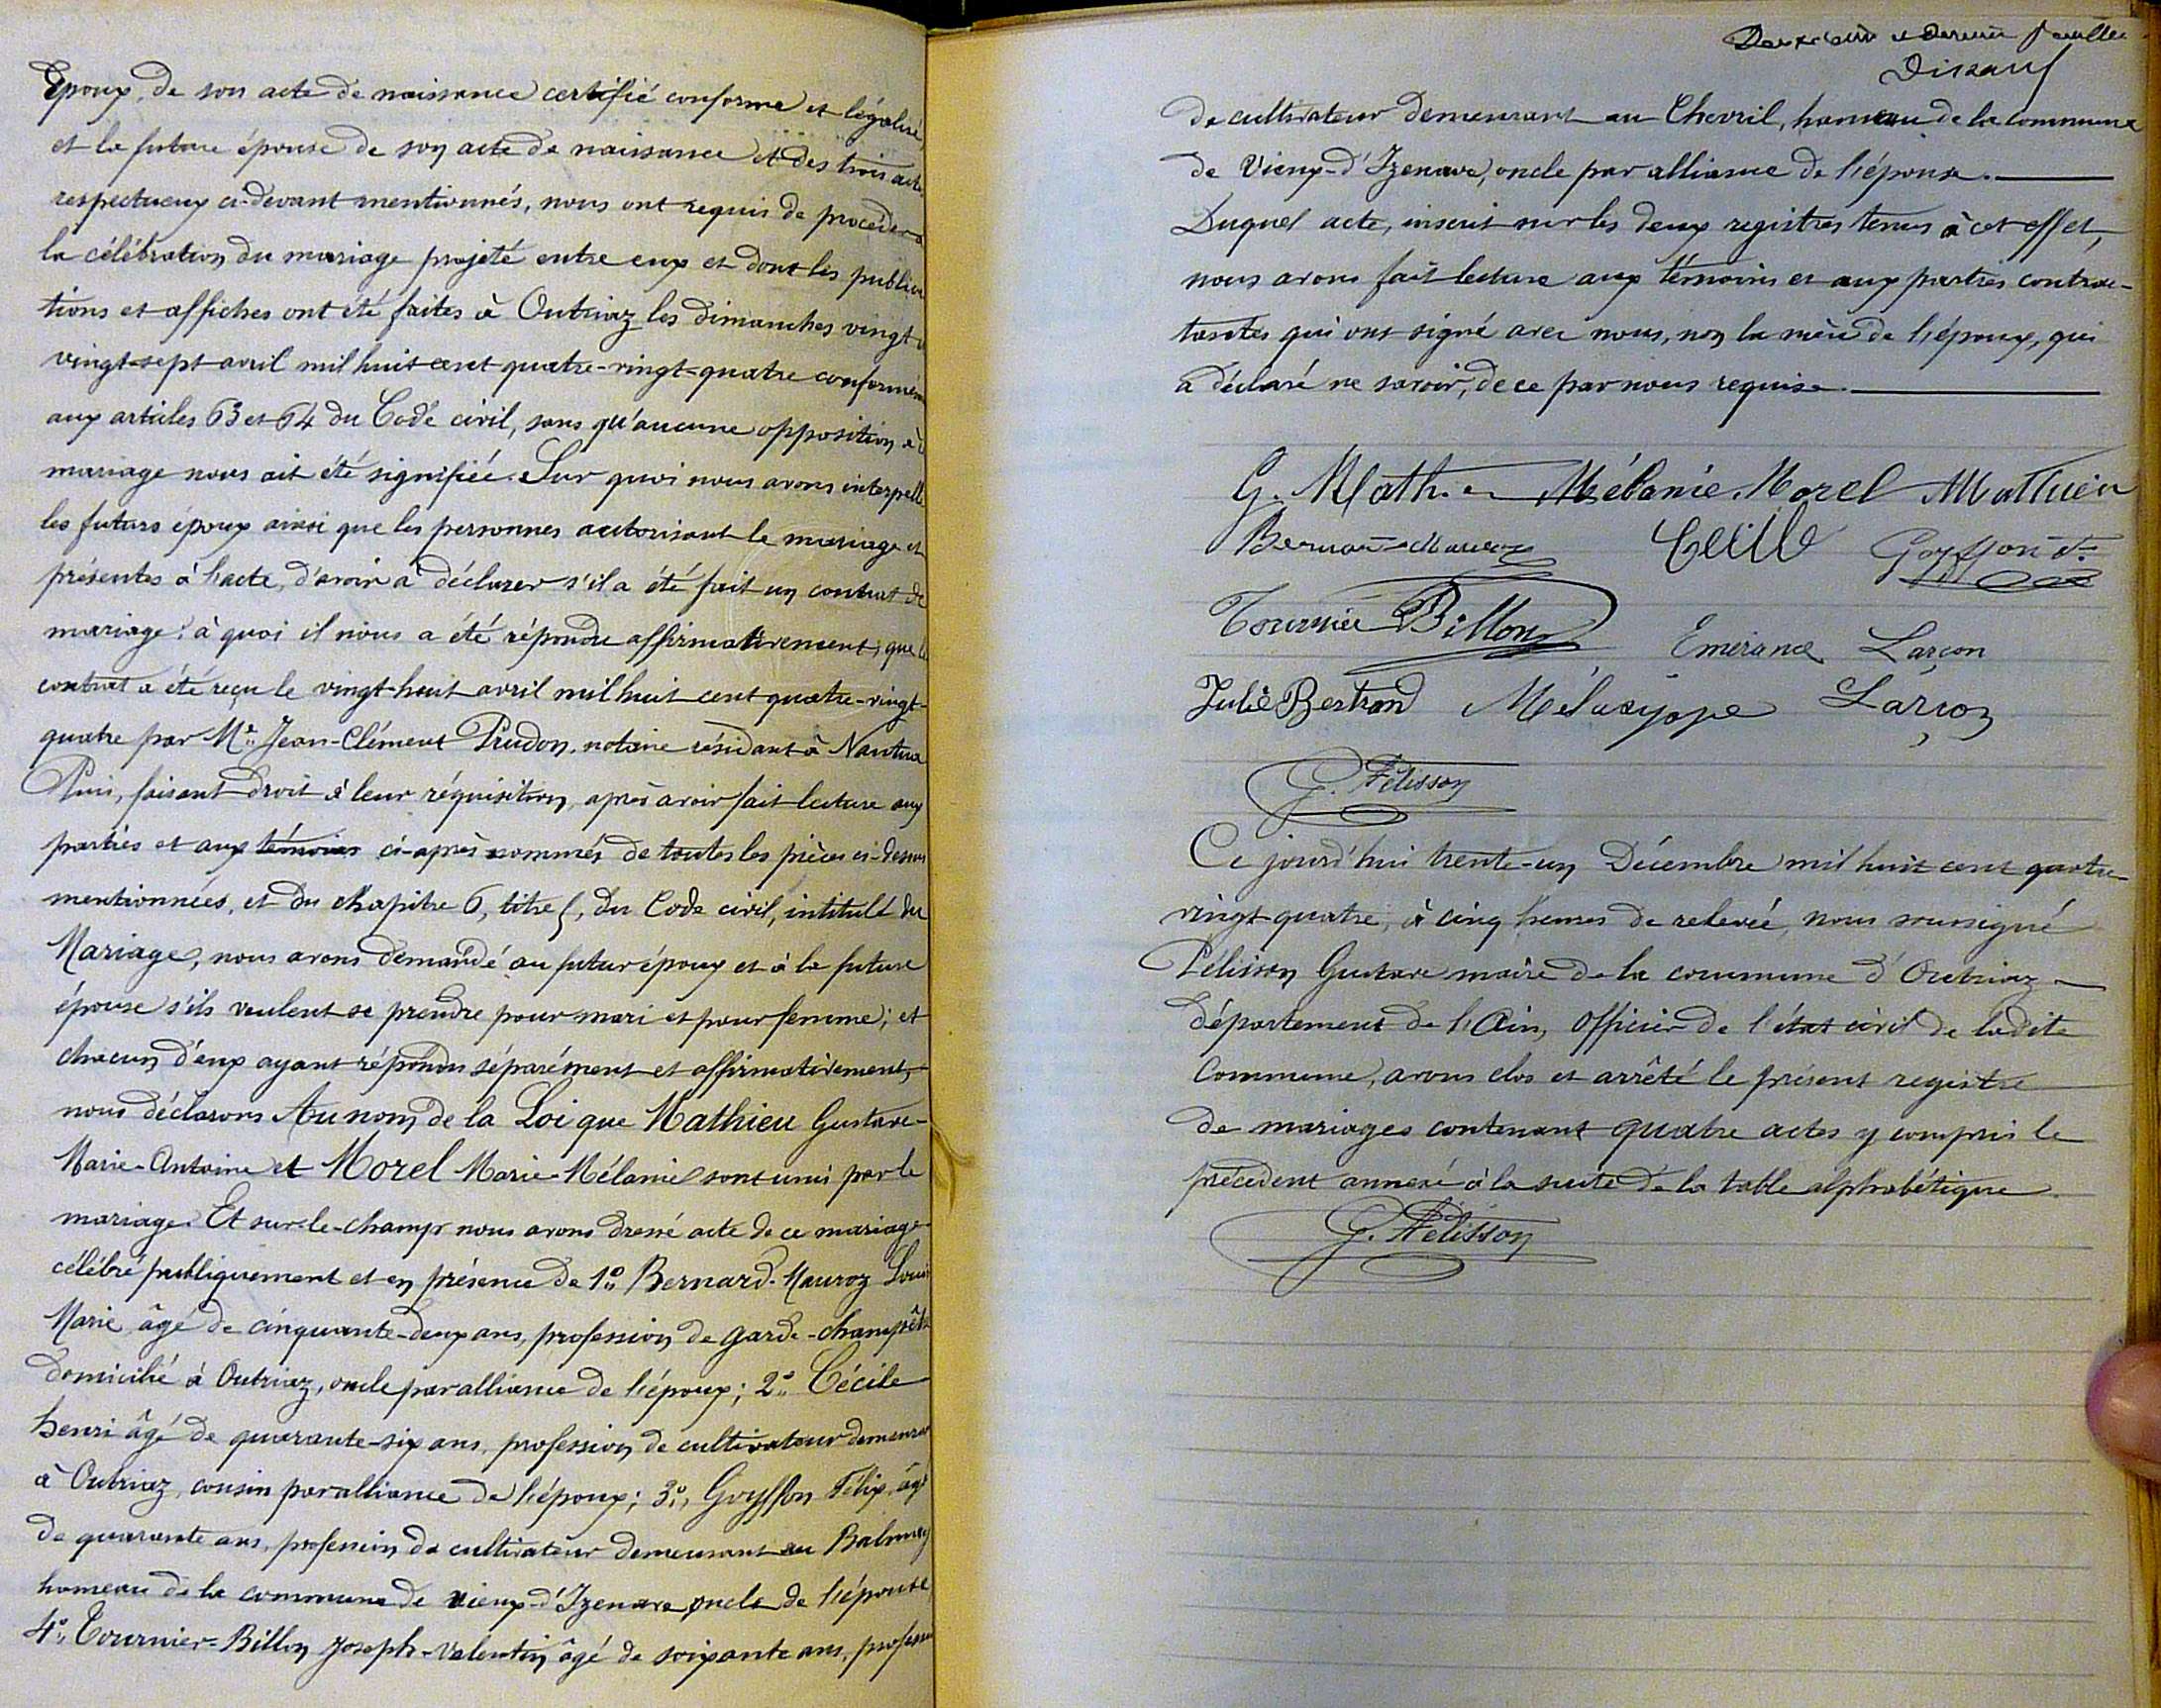 Epoux, de son acte de naissance certifié conforme et légalisé
et la future épouse de son acte de naissance et des trois actes
respectueux ci-devant mentionnés, nous ont requis de procéder à
la célébration du mariage projeté entre eux et dont les publica
tions et affiches ont été faites à Outriaz les dimanches vingt et
vingt-sept avril mil huit cent quatre-vingt-quatre conformém
aux articles 63 et 64 du Code civil, sans qu'aucune opposition à
mariage nous ait été signifiée. Sur quoi nous avons interpellé
les futurs époux ainsi que les personnes autorisant le mariage et
présentes à l'acte, d'avoir à déclarer s'il a été fait un contrat de
mariage: à quoi il nous a été répondu affirmativement, que le
contrat a été reçu le vingt-huit avril mil huit cent quatre-vingt-
quatre par Me Jean-Clément Prudon, notaire résidant à Nantua
Puis, faisant droit à leur réquisition, après avoir fait lecture aux
parties et aux témoins ci-après nommés de toutes les pièces ci-dessus
mentionnées, et du chapitre 6, titre 5, du Code civil, intitulé du
Mariage, nous avons demandé au futur époux et à la future
épouse s'ils veulent se prendre pour mari et pour femme; et
chacun d'eux ayant répondu séparément et affirmativement,
nous déclarons Au nom de la Loi que Mathieu Gustave-
Marie-Antoine et Morel Marie-Mélanie sont unis par le
mariage. Et sur-le-champ nous avons dressé acte de ce mariage
célébré publiquement et en présence de 1o Bernard-Mauroz Louis
Marie, âgé de cinquante-deux ans, profession de garde-champêtr
domicilié à Outriaz, oncle par alliance de l'époux; 2o Cécile
henri âgé de quarante-six ans, profession de cultivateur demeurant
à Outriaz, cousin par alliance de l'époux; 3o, Goyffon Félix, âgé
de quarante ans, profession de cultivateur demeurant au Balmay
hameau de la commune de vieux-d'Izenave, oncle de l'épouse
4o, Tournier-Billon Joseph-Valentin âgé de soixante ans, profession
Deuxième et dernier feuillet
de cultivateur demeurant au Chevril, hameau de la commune
de Vieux-d'Izenave, oncle par alliance de l'épouse.
Duquel acte, inscrit sur les deux registres tenus à cet effet,
nous avons fait lecture aux témoins et aux parties contrac-
tantes qui ont signé avec nous, non la mère de l'époux, qui
a déclaré ne savoir, de ce par nous requise.
G. Mathieu Mélanie Morel Mathieu
Bernard-Mauroz Cécile Goyffon
Tournier Billon Emérance Larçon
Julie Bertrand Mélanippe Larçon
G. Pélisson
Ce jourd'hui trente-un Décembre mil huit cent quatre-
vingt-quatre, à cinq heures de relevée, nous soussigné
Pélisson Gustave maire de la commune d'Outriaz
département de l'Ain, Officier de l'état civil de ladite
Commune, avons clos et arrêté le présent registre
de mariages contenant quatre actes y compris le
précédent annexé à la suite de la table alphabétique.
G. Pélisson